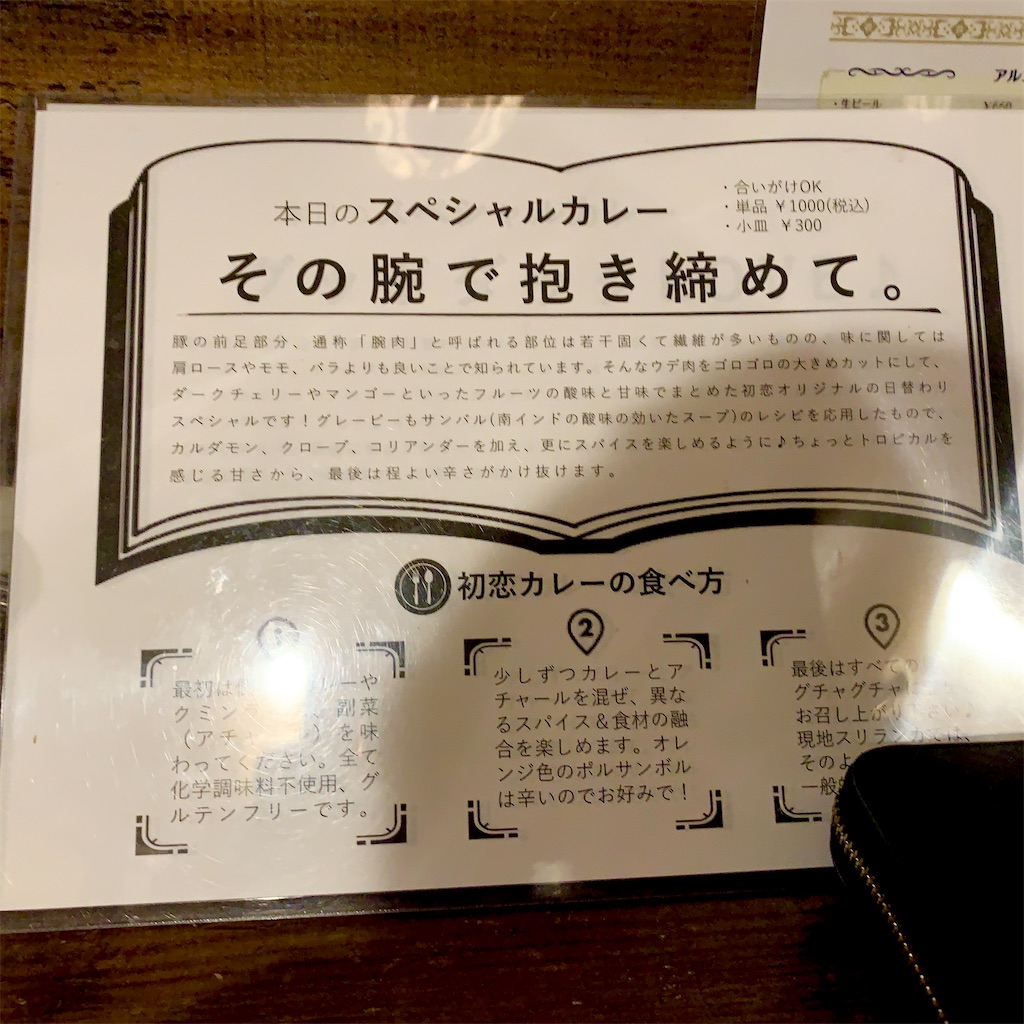 アル
・生ビール ¥660
本日のスペシャルカレー
・合いがけOK
・単品 ¥1000(税込)
・小皿 ¥300
その腕で抱き締めて。
豚の前足部分、通称「腕肉」と呼ばれる部位は若干固くて繊維が多いものの、味に関しては
肩ロースやモモ、バラよりも良いことで知られています。そんなウデ肉をゴロゴロの大きめカットにして、
ダークチェリーやマンゴーといったフルーツの酸味と甘味でまとめた初恋オリジナルの日替わり
スペシャルです！グレービーもサンバル(南インドの酸味の効いたスープ)のレシピを応用したもので、
カルダモン、クローブ、コリアンダーを加え、更にスパイスを楽しめるように♪ちょっとトロピカルを
感じる甘さから、最後は程よい辛さがかけ抜けます。
初恋カレーの食べ方
1
最初は ーや
クミン 、副菜
（アチ ）を味
わってください。全て
化学調味料不使用、グ
ルテンフリーです。
2
少しずつカレーとア
チャールを混ぜ、異な
るスパイス＆食材の融
合を楽しめます。オレ
ンジ色のポルサンボル
は辛いのでお好みで！
3
最後はすべての
グチャグチャ
お召し上がり さい♪
現地スリランカでは、
そのよ
一般